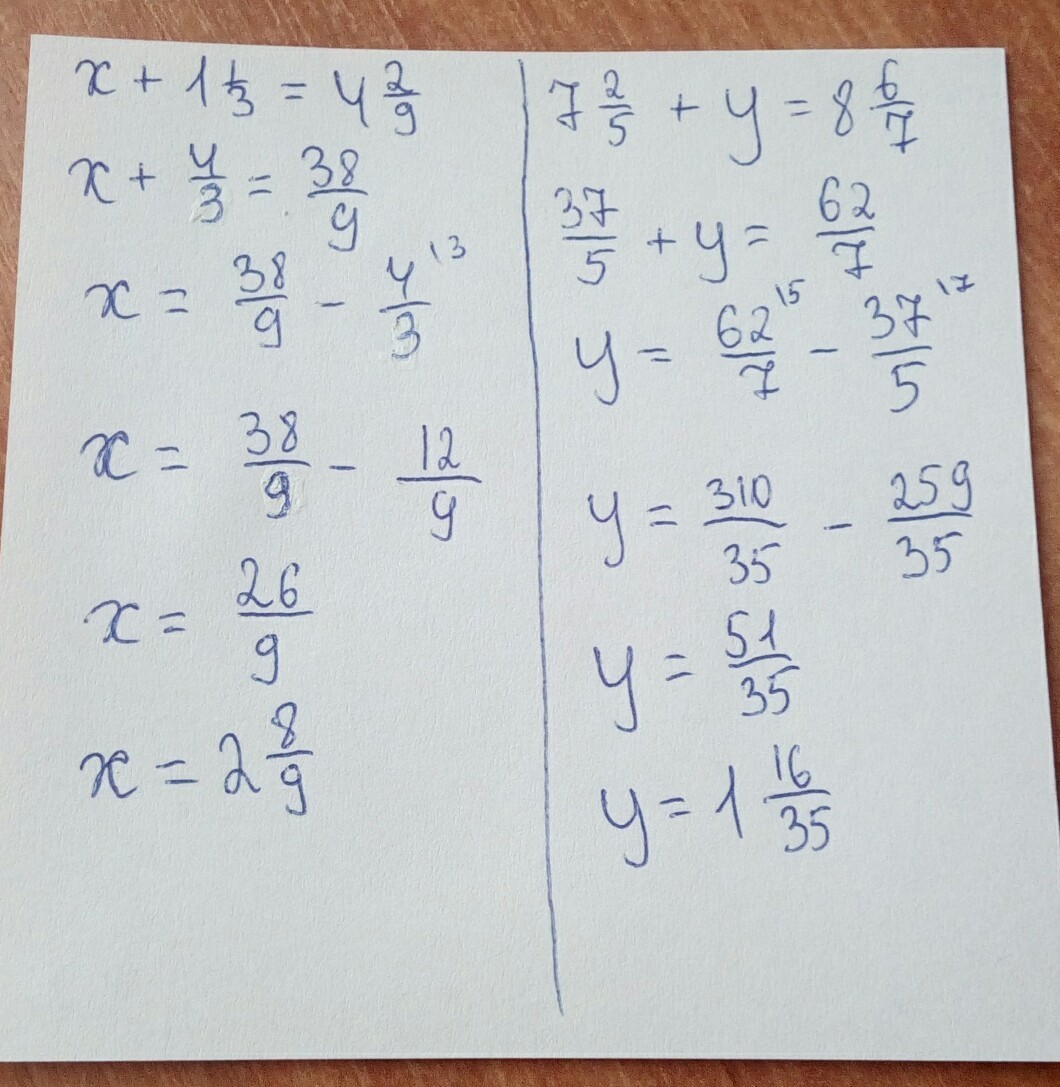 x + 1 1/3 = 4 2/9
x + 4/3 = 38/9
x = 38/9 - 4/3 \3
x = 38/9 - 12/9
x = 26/9
x = 2 8/9
7 2/5 + y = 8 6/7
37/5 + y = 62/7
y = 62/7 \5 - 37/5 \7
y = 310/35 - 259/35
y = 51/35
y = 1 16/35